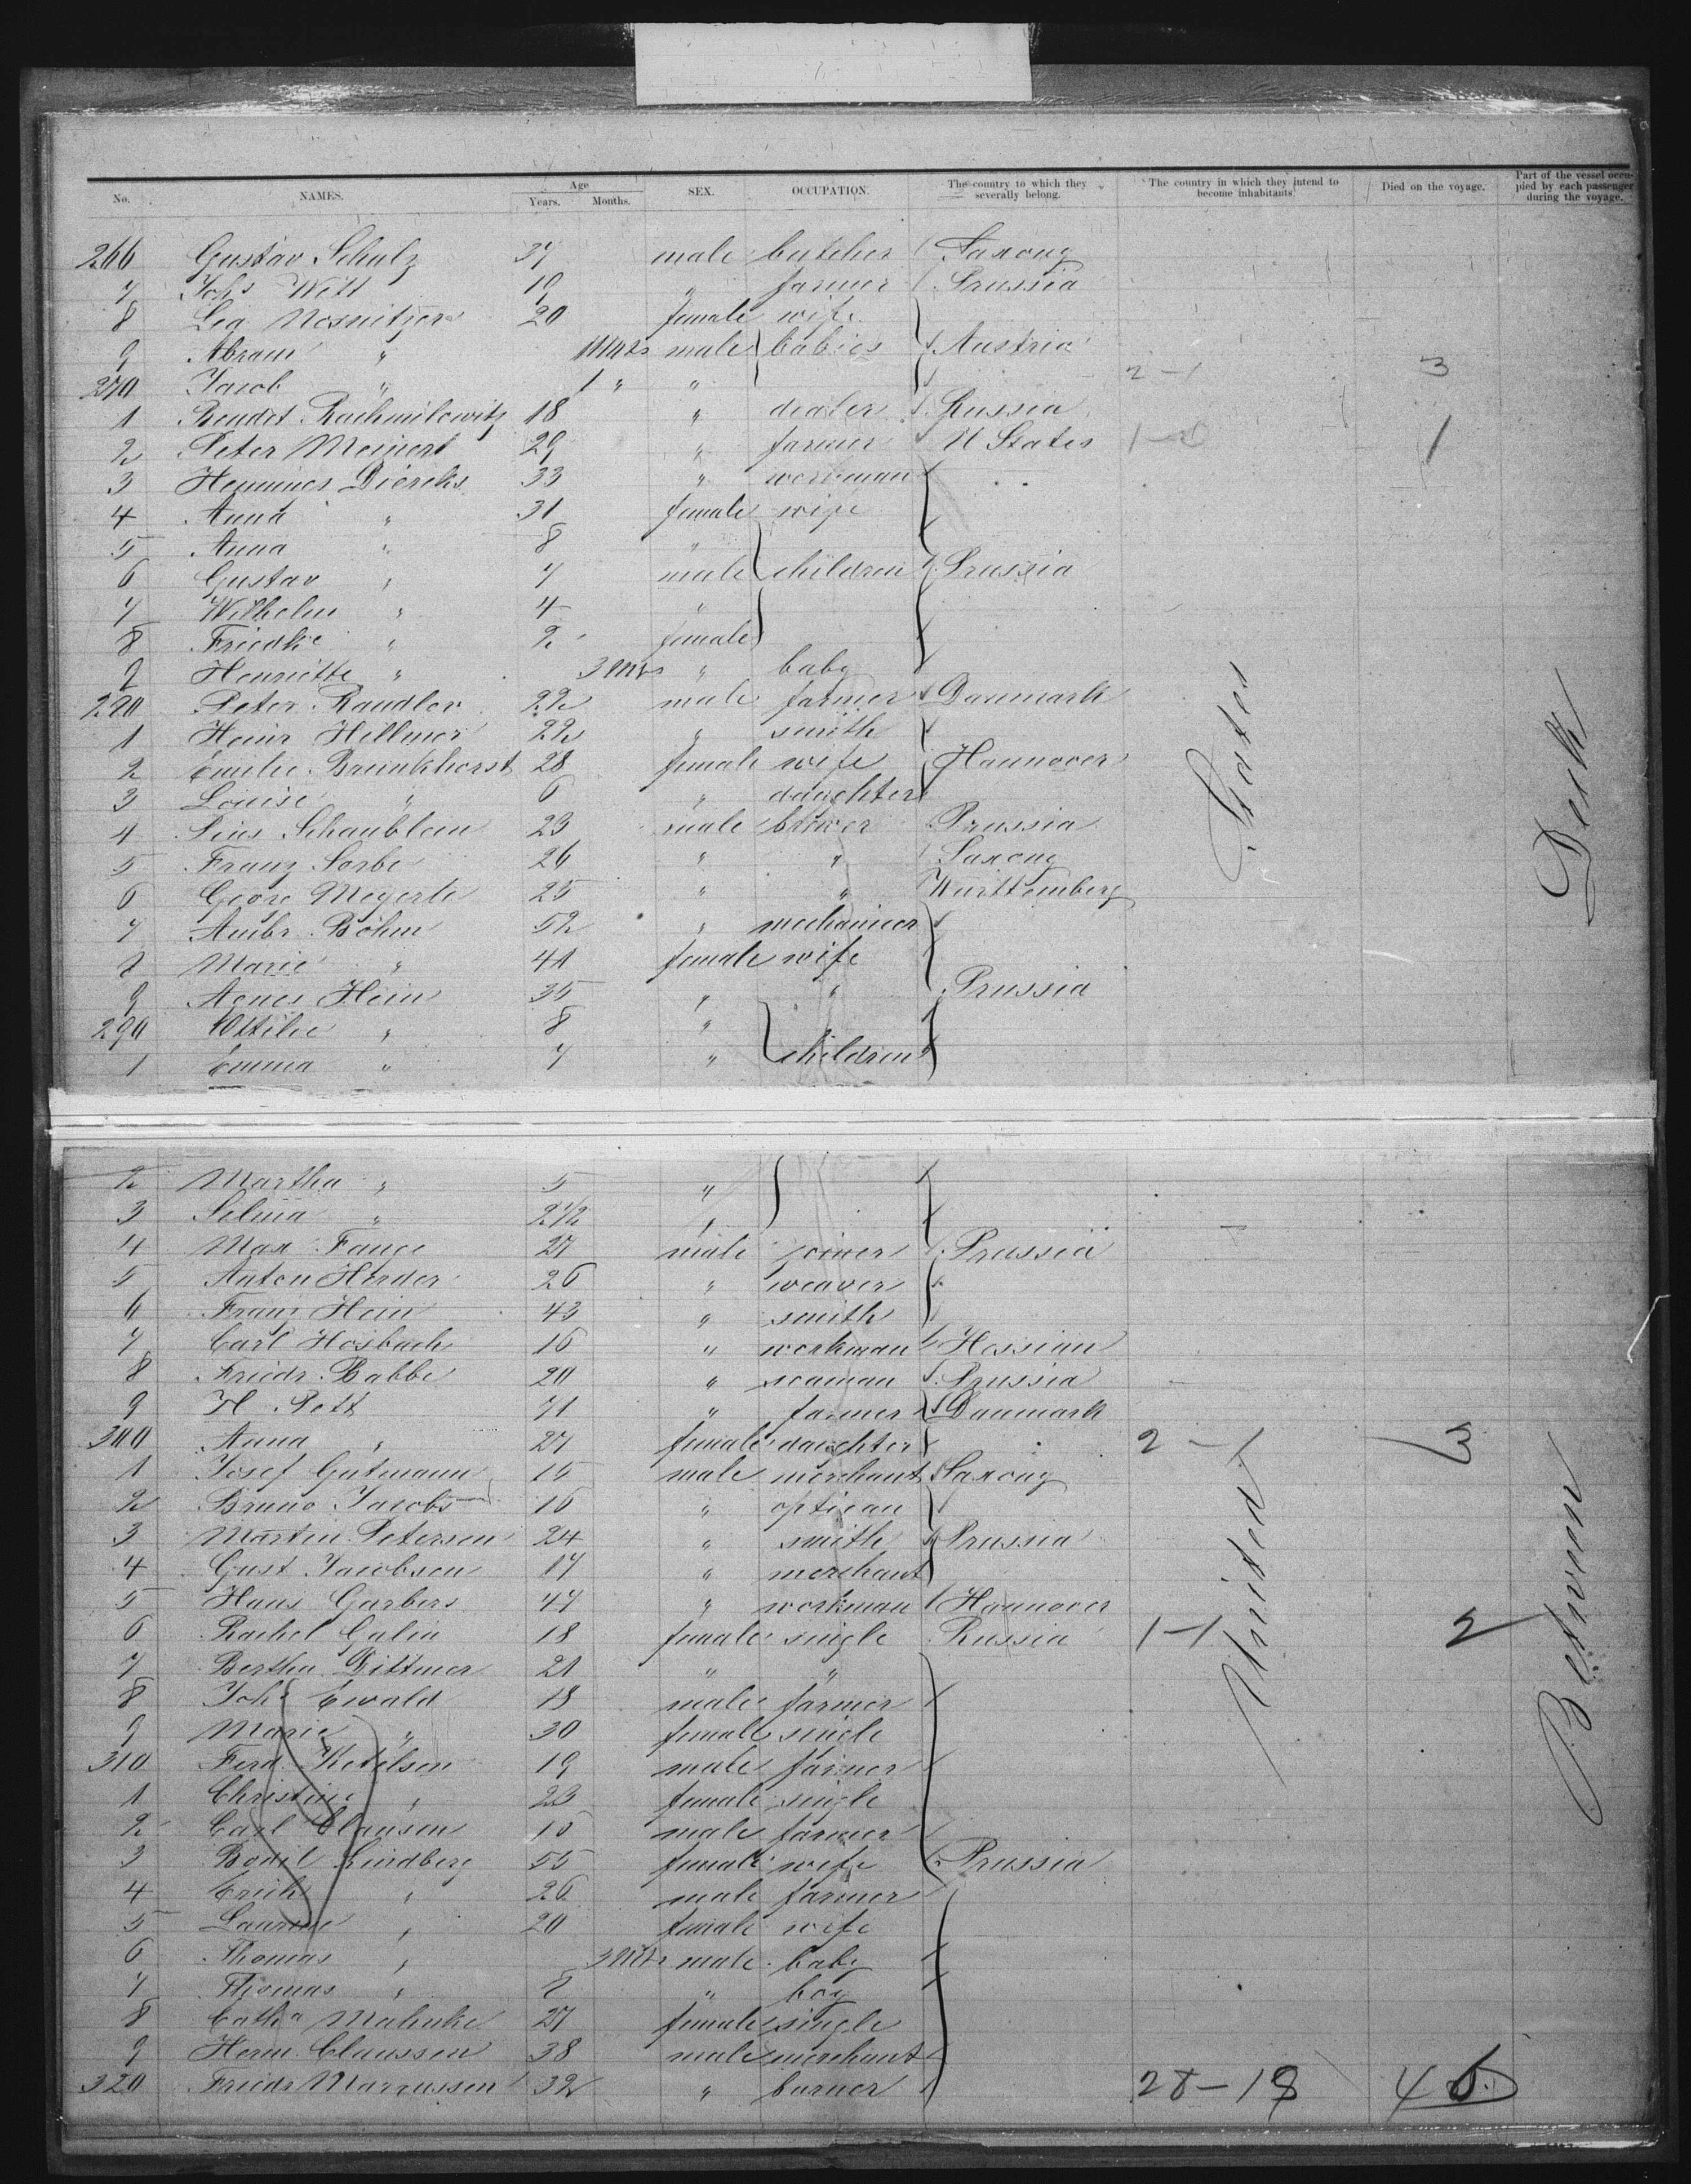 No. NAMES. Age Years. Months. SEX. OCCUPATION. The country to which they severally belong. The country in which they intend to become inhabitants. Died on the voyage. Part of the vessel occupied by each passenger during the voyage.
266 Gustav Schulz 37 male butcher Saxony
7 Johs Witt 19 " farmer Prussia
8 Lea 20 female wife
9 Abram " male babies Austria
270 Jacob " 1 " " 2-1 3
1 Bendet Rachmilowitz 18 " dealer Russia
2 Peter Meinert 29 " farmer U States 1
3 Diercks 33 " workman
4 Anna " 31 female wife
5 Anna " 8 "
6 Gustav " 7 male children Prussia
7 Wilhelm " 4 "
8 Friedke " 2 female
9 Henriette " 3 " baby
280 Peter Randlev 22 male farmer Danmark
1 Heinr Hillmer 22 " smith
2 Emilie Brunkhorst 28 female wife Hannover
3 Louise " 6 " daughter
4 Pius Schaublein 23 male brewer Prussia
5 Franz Sorbe 26 " " Saxony
6 Georg Megerle 25 " " Württemberg
7 Ambr. Böhm 52 " mechanicer
8 Marie " 41 female wife
9 Agnes Hein 35 " " Prussia
290 Ottilie " 8 "
1 Emma " 7 " children
2 Martha " 5 "
3 Selma " 2 1/2 "
4 Max Fange 27 male joiner Prussia
5 Anton Herder 26 " weaver
6 Franz Hein 43 " smith
7 Carl Hosbach 16 " workman Hessian
8 Friedr. Babbe 20 " seaman Prussia
9 H. Pett 71 " farmer Danmark
300 Anna " 27 female daughter 2-1 3
1 Josef Gutmann 15 male merchant Saxony
2 Bruno Jacobs 16 " optican
3 Martin Petersen 24 " smith Prussia
4 Gust Jacobsen 17 " merchant
5 Hans Garbers 47 " workman Hannover
6 Rachel Calin 18 female single Russia 1-1 2
7 Bertha Dittmer 21 " "
8 Johs Ewald 18 male farmer
9 Marie " 30 female single
310 Ferd. Ketelsen 19 male farmer
1 Christine " 23 female single
2 Carl Clausen male farmer
3 Bodil Lindberg 55 female wife Prussia
4 Erich " 26 male farmer
5 Laurine " 20 female wife
6 Thomas " 3 male baby
7 Thomas " 8 " boy
8 Catha Mahnke 27 female single
9 Herm. Claussen 38 male merchant
320 Friedr 32 " 28-18 46
United States
Between Deck